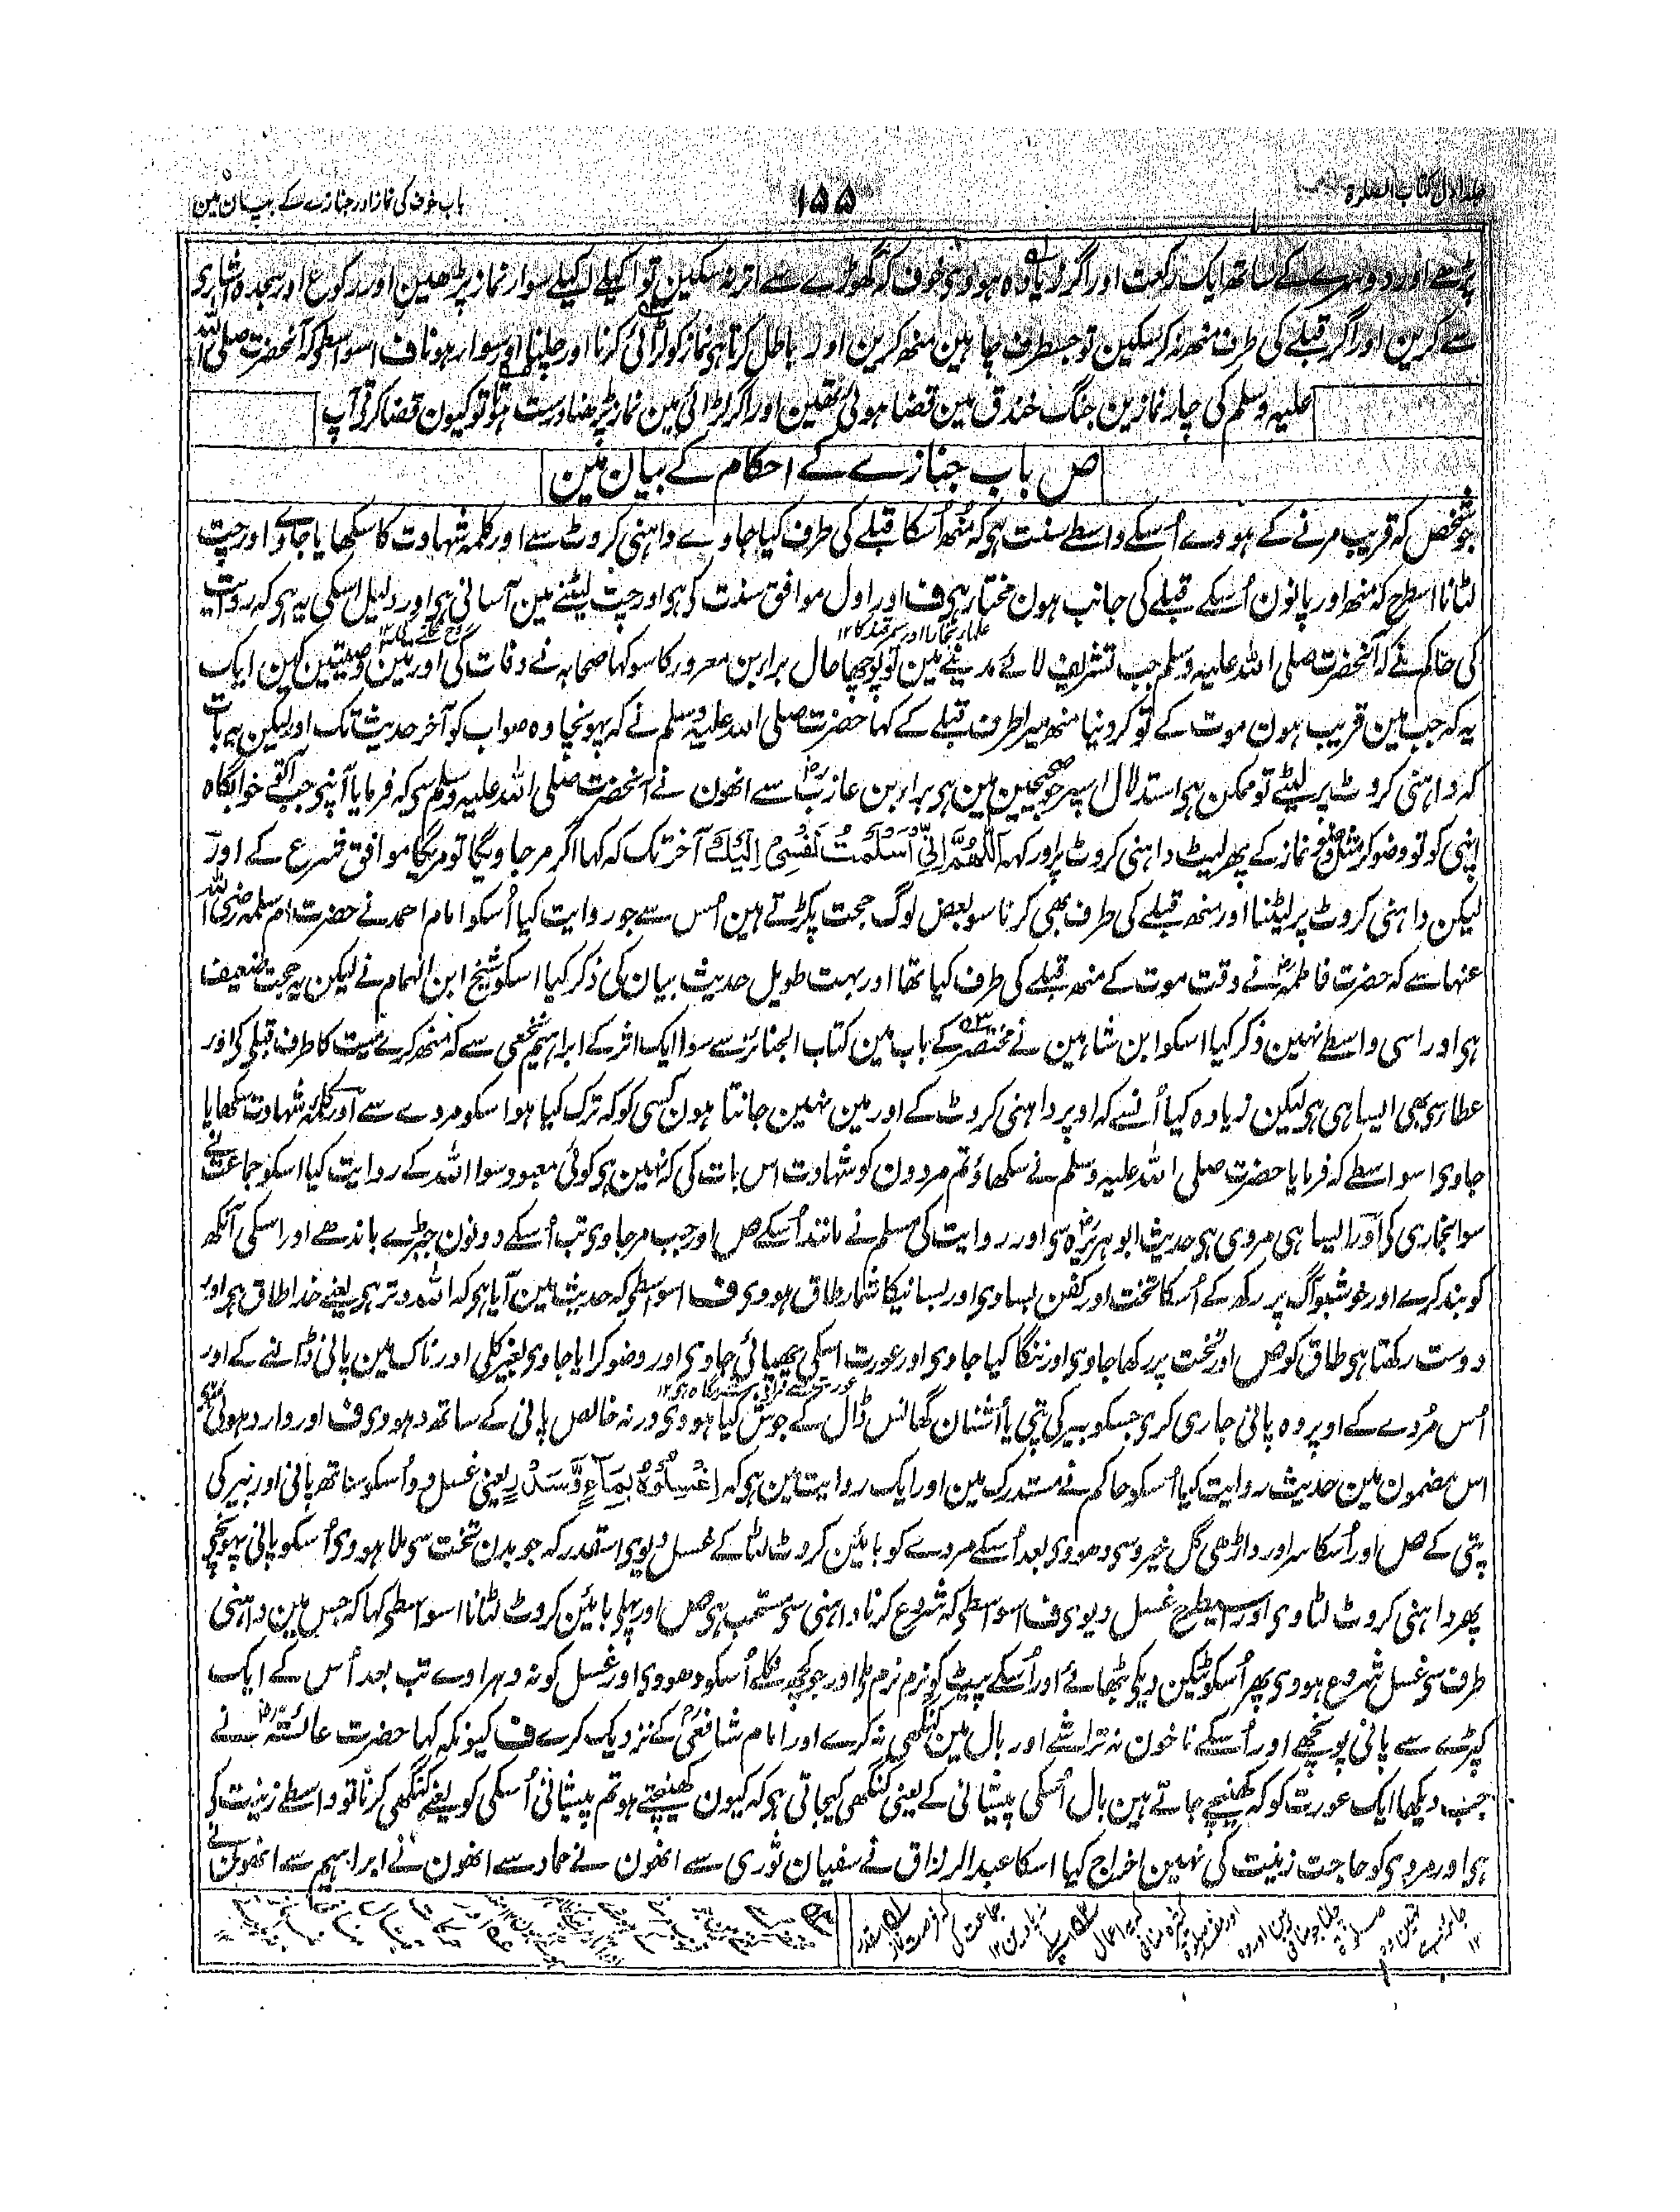 جلد اول کتاب الصلوة
۱۵۵
باب خوف کی نماز اور جنازے کے بیان مین
پڑھے اور دوسرے کے ساتھ ایک رکعت اور اگر زیادہ ہووی خوف کہ گھوڑے سے اتر نہ سکین تو اکیلے اکیلے سوار نماز پڑھین اور رکوع اور سجدہ اشاری
سے کرین اور اگر قبلے کی طرف منھ نہ کر سکین تو جسطرف چاہین منھ کرین اور باطل کرتا ہی نماز کو لڑائی کرنا اور چلنا اور سوار ہونا ف اسواسطی کہ آنحضرت صلی اللہ
علیہ وسلم کی چار نمازین جنگ خندق مین قضا ہوئی تھین اور اگر لڑائی مین نماز پڑھنا درست ہوتا تو کیون قضا کرتی آپ
ص باب جنازے کے احکام کے بیان مین
جو شخص کہ قریب مرنے کے ہووے اُسکے واسطے سنت ہی کہ مُنھ اُسکا قبلے کی طرف کیا جاوے داہنی کروٹ سے اور کلمہ شہادت کا سکھایا جاوے اور چت
لٹانا اسطرح کہ منھ اور پانون اُسکے قبلے کی جانب ہون مختار ہی ف اور اول موافق سنت کی ہی اور چت لیٹنے مین آسانی ہی اور دلیل اسکی یہ ہی کہ روایت
علماء بخارا اور سمرقند کا ۱۲
کی حاکم نے کہ آنحضرت صلی اللہ علیہ وسلم جب تشریف لائے مدینے مین تو پوچھا حال برابر بن معرور کا سو کہا صحابہ نے وفات کی اور تین وصیتین کہین ایک
یہ کہ جب مین قریب ہون موت کے تو کر دنیا منھ میرا طرف قبلے کے کہا حضرت صلی اللہ علیہ وسلم نے کہ پہونچا وہ صواب کو آخر حدیث تک اور لیکن یہ بات
کہ داہنی کروٹ پر لیٹے تو ممکن ہی استدلال اسپر جو صحیحین مین ہی برابر بن عازب رض سے انھون نے آنحضرت صلی اللہ علیہ وسلم سی کہ فرمایا آپنی جب آئے خوابگاہ
اپنی کو تو وضو کر مثل وضو نماز کے پھر لیٹ داہنی کروٹ پر اور کہہ اَللّٰهُمَّ اِنِّیْ اَسْلَمْتُ نَفْسِیْ اِلَیْكَ آخر تک کہ کہا اگر مر جاویگا تو مریگا موافق شرع کے اور
لیکن داہنی کروٹ پر لیٹنا اور منھ قبلے کی طرف بھی کرنا سو بعض لوگ حجت پکڑتے ہین اُس سے جو روایت کیا اُسکو امام احمد نے حضرت ام سلمہ رضی اللہ
عنہا سے کہ حضرت فاطمہ رض نے وقت موت کے منھ قبلے کی طرف کیا تھا اور بہت طویل حدیث بیان کی ذکر کیا اسکو شیخ ابن الہمام نے لیکن یہ حجت ضعیف
ہی اور اسی واسطے نہین ذکر کیا اسکو ابن شاہین نے مختصر کے باب مین کتاب الجنائز سے سوا ایک اثر کے ابراہیم نخعی سے کہ منھ کرے میت کا طرف قبلی کی اور
عطا رسی بھی ایسا ہی ہی لیکن زیادہ کیا اُنسے کہ اوپر داہنی کروٹ کے اور مین نہین جانتا ہون کسی کو کہ ترک کیا ہو اسکو مردے سے اور کلمہ شہادت سکھایا
جاوی اسواسطے کہ فرمایا حضرت صلی اللہ علیہ وسلم نے سکھاؤ تم مردون کو شہادت اس بات کی کہ نہین ہی کوئی معبود سوا اللہ کے روایت کیا اسکو جماعت نے
سوا بخاری کی اور ایسا ہی مروی ہی حدیث ابو ہریرہ رض سی اور روایت کی مسلم نے مانند اُسکے ص اور جب مر جاوی تب اُسکے دونون جبڑے باندھے اور اسکی آنکھ
کو بند کرے اور خوشبو آگ پر رکھ کے اُسکا تخت اور کفن بساوی اور بسانیکا شمار طاق ہووی ف اسواسطی کہ حدیث مین آیا ہی کہ اللہ وتر ہی یعنے خدا طاق ہی اور
دوست رکھتا ہی طاق کو ص اور تخت پر رکھا جاوی اور ننگا کیا جاوی اور عورت اسکی چھپائی جاوی اور وضو کرایا جاوی بغیر کلی اور ناک مین پانی ڈالنے کے اور
اُس مُردے کے اوپر وہ پانی جاری کری جسکو بیر کی پتی یا اُشنان گھانس ڈال کے جوش کیا ہووی ورنہ خالص پانی کے ساتھ دہووی ف اور وارد ہوئی
اس مضمون مین حدیث روایت کیا اُسکو حاکم نے مستدرک مین اور ایک روایت مین ہی کہ اِغْسِلُوْهُ بِمَاءٍ وَّسِدْرٍ یعنی غسل دو اُسکو ساتھ پانی اور بیر کی
پتی کے ص اور اُسکا سر اور داڑھی گل خیرو سی دھووی بعد اُسکے مردے کو بائین کروٹ لٹا کے غسل دیوی استقدر کہ جو بدن تخت سی ملا ہووی اُسکو پانی پہونچے
پھر داہنی کروٹ لٹاوی اور اسیطرح غسل دیوی ف اسواسطی کہ شروع کرنا داہنی سی مستحب ہی ص اور پہلی بائین کروٹ لٹانا اسواسطی کہا کہ جس مین داہنی
طرف سی غسل شروع ہووی پھر اُسکو ٹیکین دیکی بٹھائے اور اُسکے پیٹ کو نرم نرم ملے اور جو کچھ نکلے اُسکو دھووی اور غسل کو نہ دہراوے تب بعد اُس کے ایک
کپڑے سے پانی پونچھے اور اُسکے ناخون نہ تراشے اور بال مین کنگھی نہ کرے اور امام شافعی کے نزدیک کرے ف کیونکہ کہا حضرت عائشہ رض نے
جب دیکھا ایک عورت کو کہ کھینچے جاتے ہین بال اُسکی پیشانی کے یعنی کنگھی کیجاتی ہی کہ کیون کھینچتے ہو تم پیشانی اُسکی کو یعنے کنگھی کرنا تو واسطے زینت کی
ہی اور مردی کو حاجت زینت کی نہین اخراج کیا اسکا عبد الرزاق نے سفیان ثوری سے انھون نے حماد سے انھون نے ابراہیم سے انھون نے